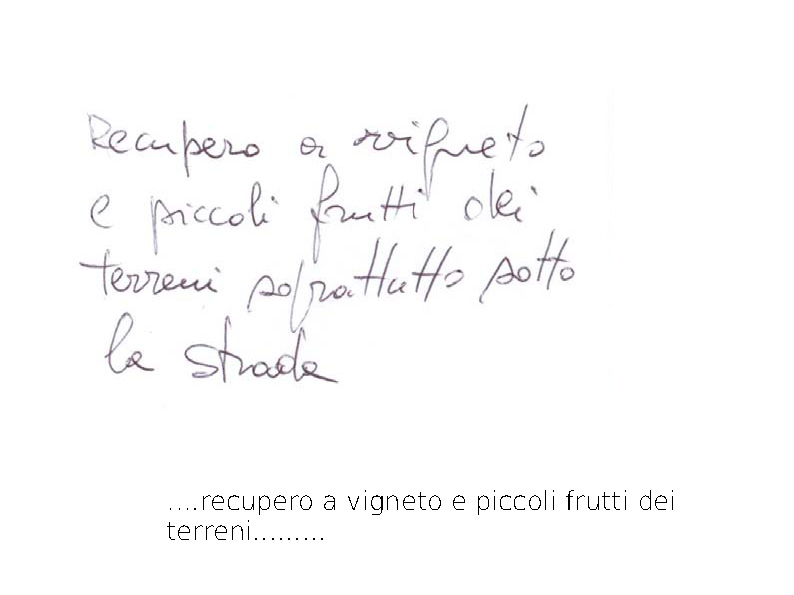 Recupero a vigneto
e piccoli frutti dei
terreni soprattutto sotto
la strada
....recupero a vigneto e piccoli frutti dei
terreni.........